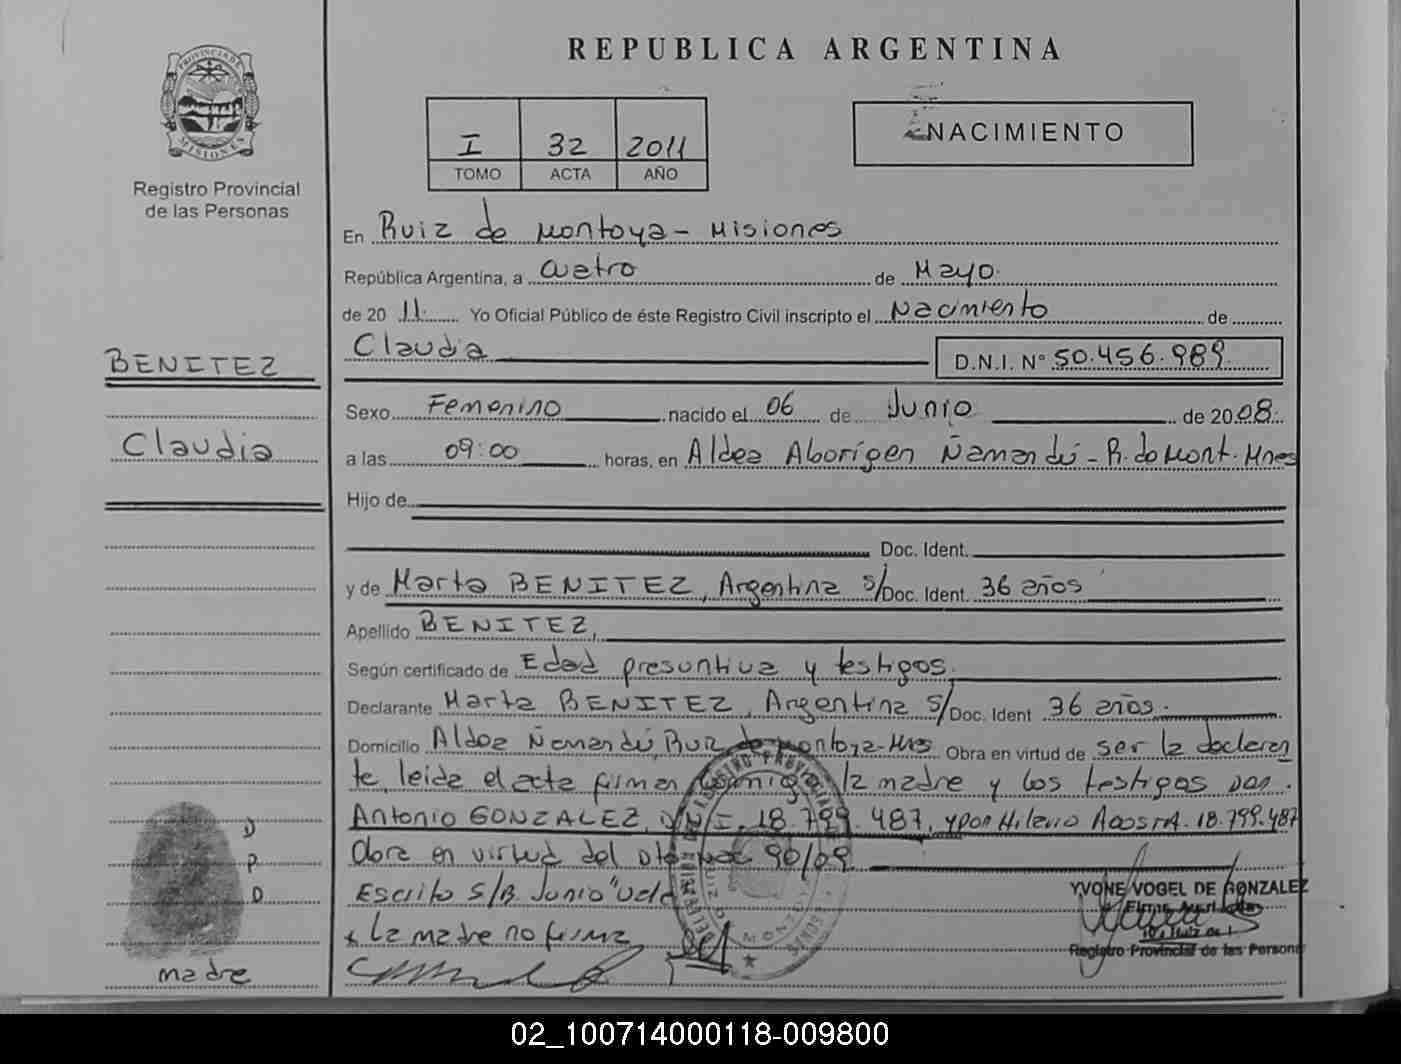 REPUBLICA ARGENTINA
PROVINCIA DE
MISIONES
Registro Provincial
de las Personas
I 32 2011
TOMO ACTA AÑO
NACIMIENTO
En Ruiz de Montoya - Misiones
República Argentina, a cuatro de Mayo
de 20 11. Yo Oficial Público de éste Registro Civil inscripto el Nacimiento de
BENITEZ
Claudia D.N.I. N° 50.456.989.
Sexo Femenino nacido el 06 de Junio de 2008.
Claudia
a las 09:00 horas, en Aldea Aborígen Ñamandú - R. de Mont. Mnes
Hijo de
Doc. Ident.
y de Marta BENITEZ, Argentina s/Doc. Ident. 36 años
Apellido BENITEZ,
Según certificado de Edad presuntiva y testigos.
Declarante Marta BENITEZ, Argentina s/Doc. Ident 36 años.
Domicilio Aldea Ñamandú, Ruiz de Montoya-Mnes Obra en virtud de ser la declaran
te, leida el acta firman la madre y los testigos
Antonio GONZALEZ, D.N.I. 18.799.487, y por Hilario Acosta. 18.799.487
Obra en virtud del 90/09
D
P
D
Escrito S/B Junio "Vale
YVONE VOGEL DE GONZALEZ
Registro Provincial de las Persona
La madre no firma
madre
02_100714000118-009800